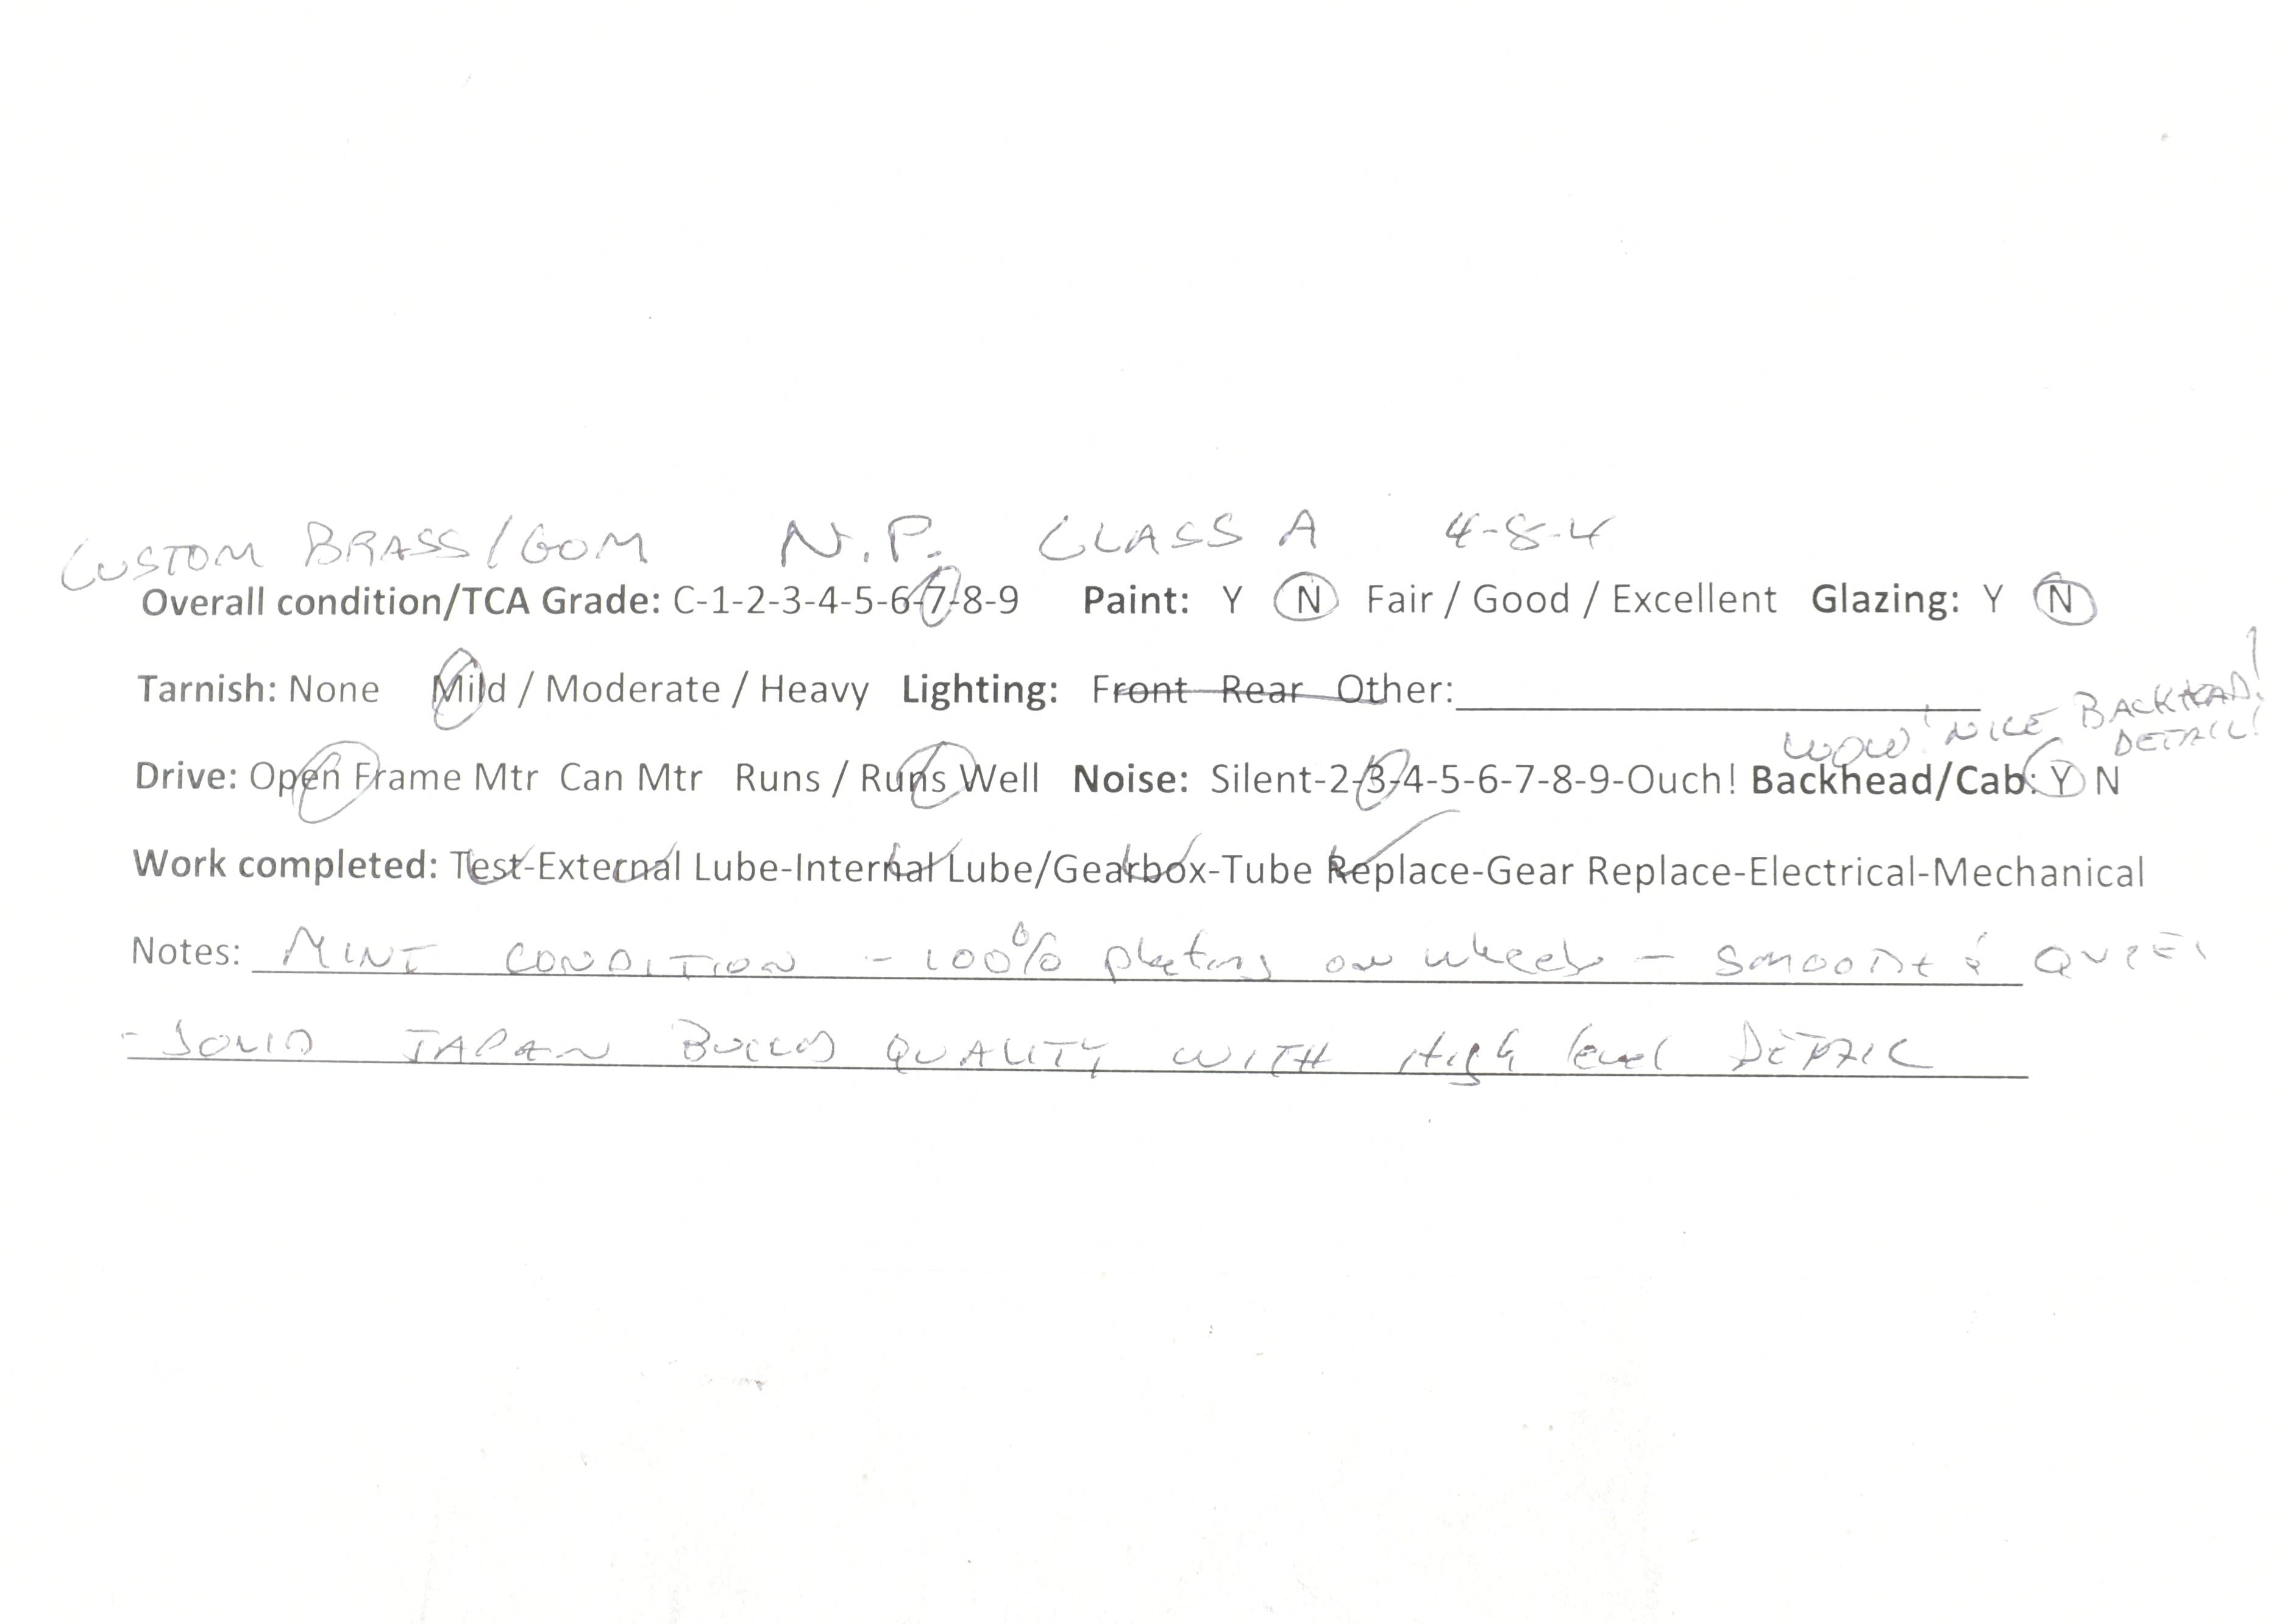 CUSTOM BRASS/GOM N.P. CLASS A 4-8-4
Overall condition/TCA Grade: C-1-2-3-4-5-6-7-8-9 Paint: Y N Fair / Good / Excellent Glazing: Y N
Tarnish: None Mild / Moderate / Heavy Lighting: Front Rear Other:
WOW! NICE BACKHEAD!
DETAIL!
Drive: Open Frame Mtr Can Mtr Runs / Runs Well Noise: Silent-2-3-4-5-6-7-8-9-Ouch! Backhead/Cab: Y N
Work completed: Test-External Lube-Internal Lube/Gearbox-Tube Replace-Gear Replace-Electrical-Mechanical
Notes: MINT CONDITION - 100% plating on wheels - SMOOTH & QUIET
- SOLID JAPAN BUILD QUALITY WITH HIgh level DETAIL